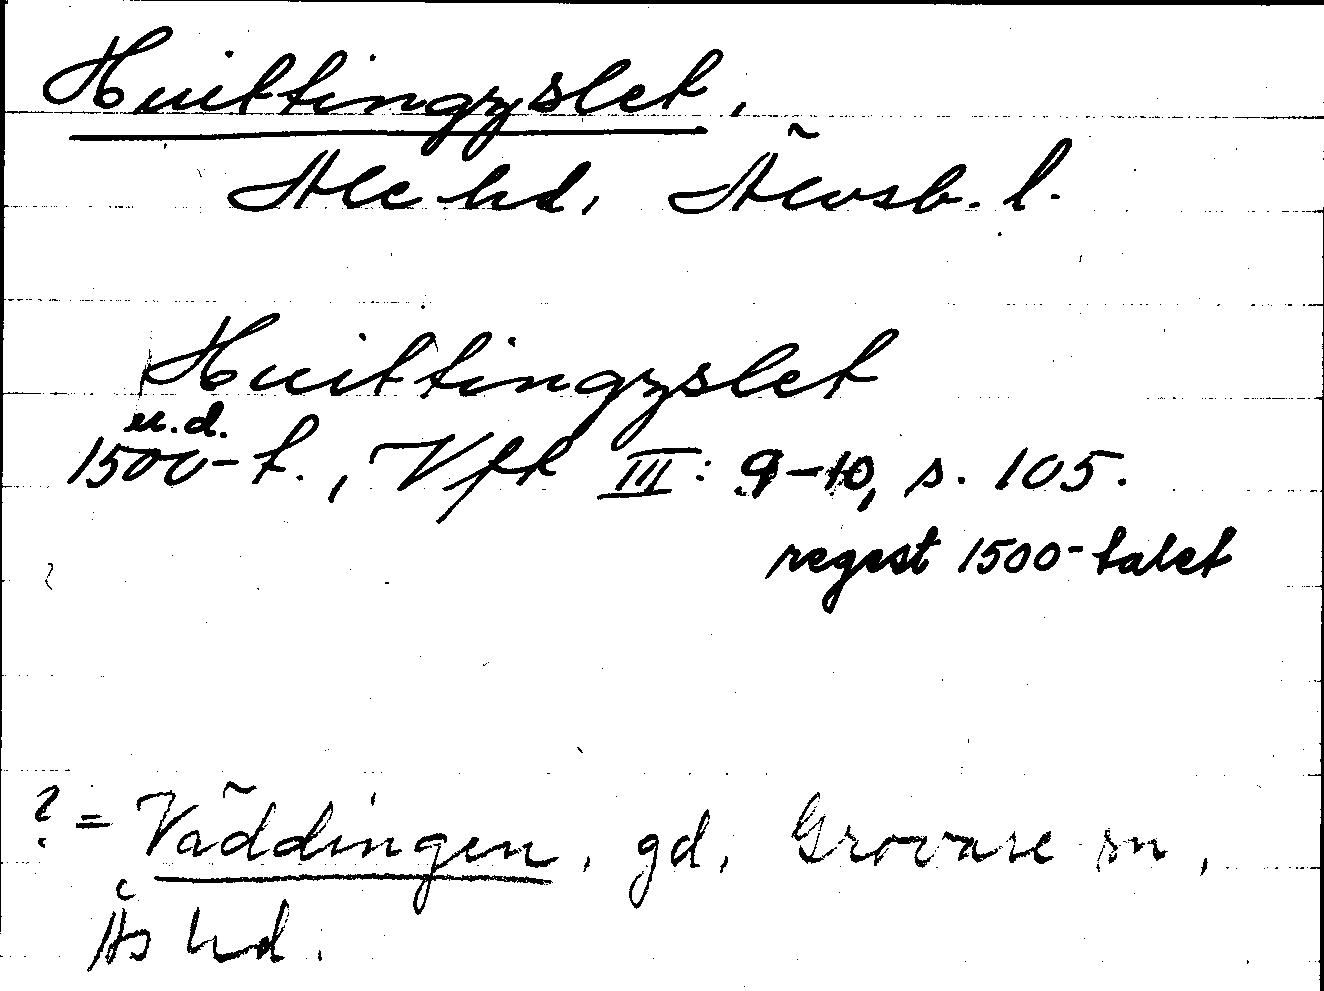 Huittingzslet,
Ale hd, Älvsb. l.
Huittingzslet
u.d.
1500-t., Vfk III: 9-10, s. 105.
regest 1500-talet
? = Väddingen, gd, Grovare sn,
Ås hd.